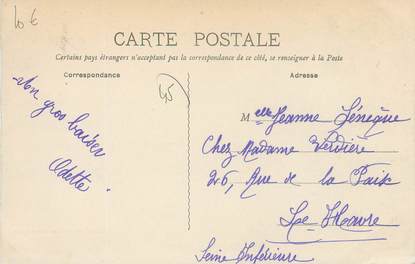 10 €
CARTE POSTALE
Certains pays étrangers n'acceptant pas la correspondance de ce côté, se renseigner à la Poste
Correspondance
Adresse
45
Un gros baiser
Odette
Melle Jeanne Sénèque
Chez Madame Verdière
26, Rue de la Paix
Le Havre
Seine Inférieure